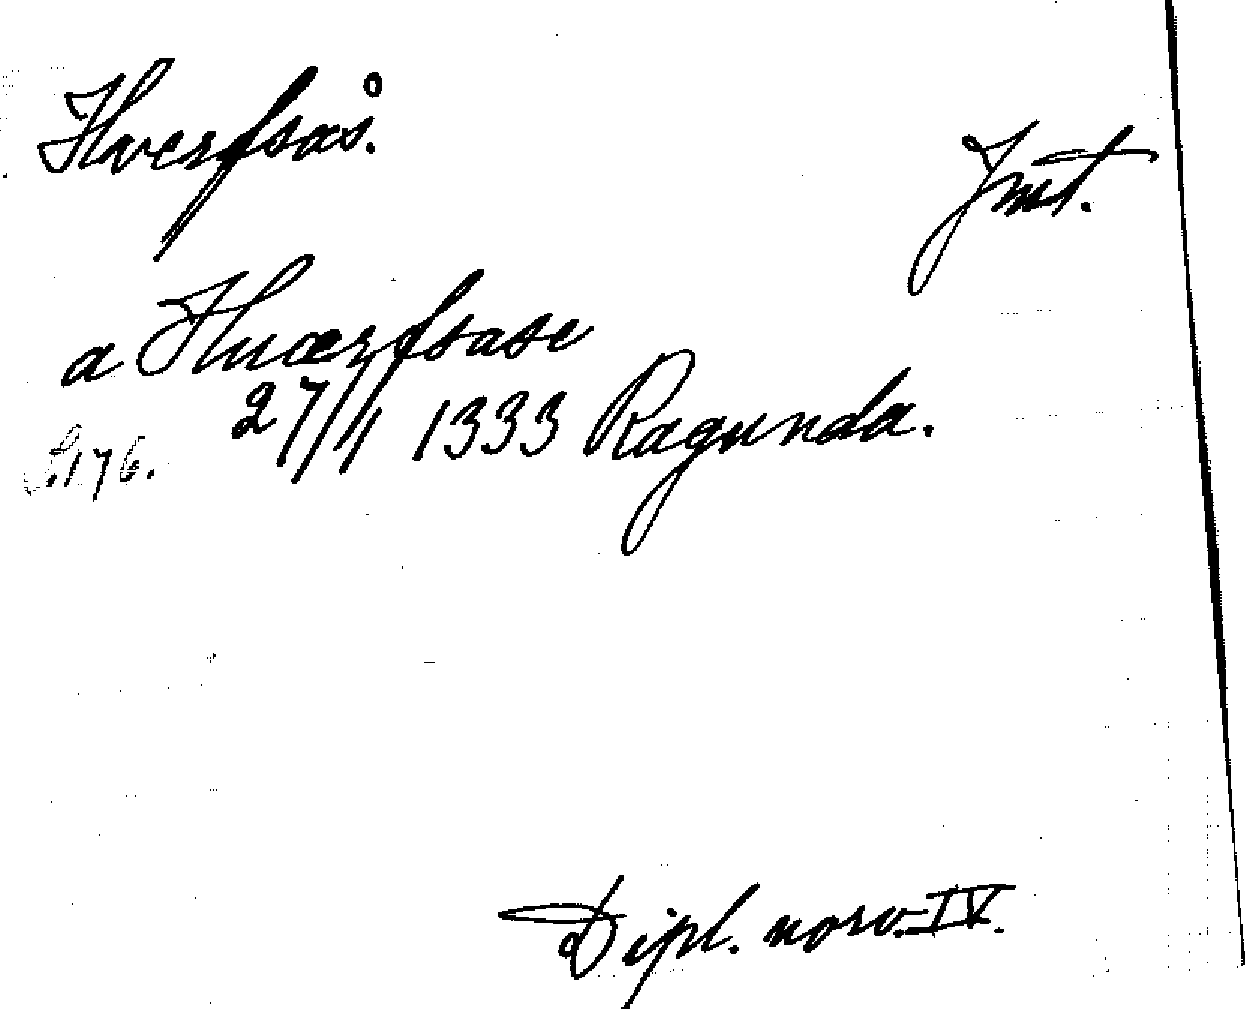 Hverfsås.
Jmt.
a Huærfsase
27/1 1333 Ragunda.
S. 176.
Dipl. norv. IV.